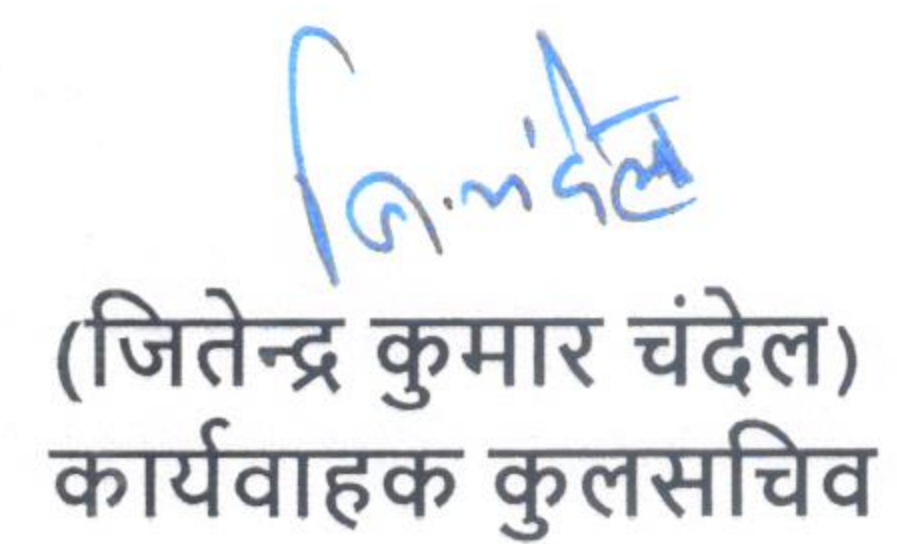 जि. चंदेल
(जितेन्द्र कुमार चंदेल)
कार्यवाहक कुलसचिव